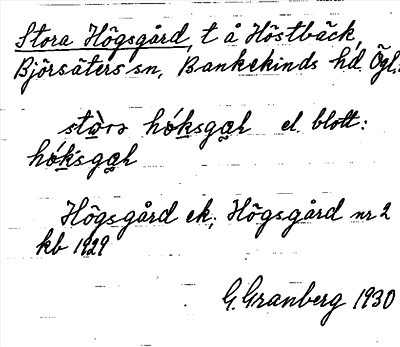 Stora Högsgård, t å Höstbäck
Björsäters sn, Bankekinds hd. Ögl.
stɷ̀rə hǿksgɑɥ el. blott:
hǿksgɑɥ
Högsgård ek; Högsgård nr 2
kb 1929
G. Granberg 1930